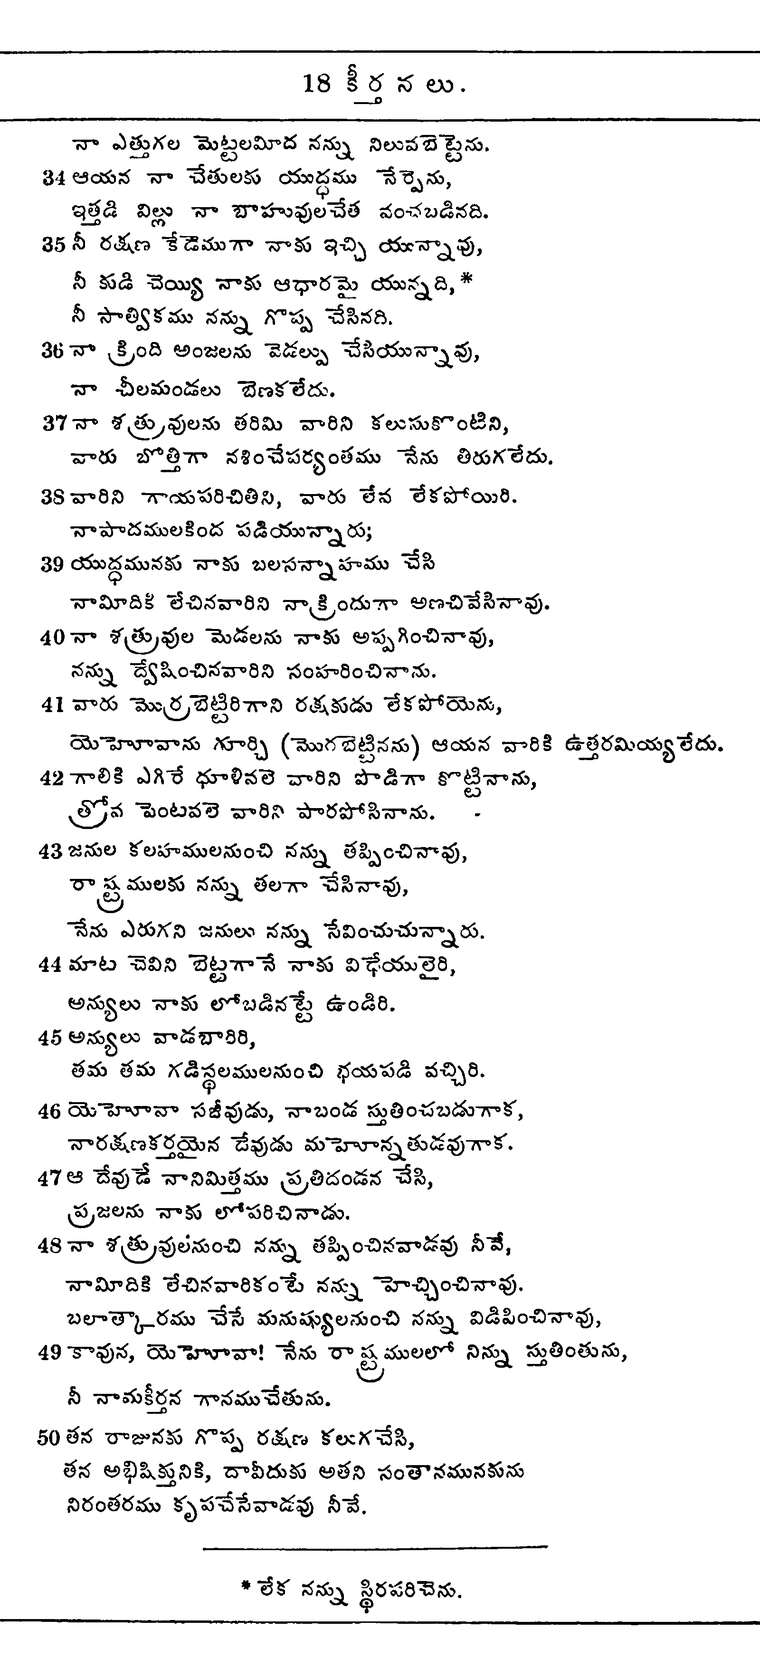 18 కీర్తనలు.
నా ఎత్తుగల మెట్టలమీద నన్ను నిలువబెట్టెను.
34 ఆయన నా చేతులకు యుద్ధము నేర్పెను,
ఇత్తడి విల్లు నా బాహువులచేత వంచబడినది.
35 నీ రక్షణ కేడెముగా నాకు ఇచ్చి యున్నావు,
నీ కుడి చెయ్యి నాకు ఆధారమై యున్నది,*
నీ సాత్వికము నన్ను గొప్ప చేసినది.
36 నా క్రింది అంజలను వెడల్పు చేసియున్నావు,
నా చీలమండలు బెణకలేదు.
37 నా శత్రువులను తరిమి వారిని కలుసుకొంటిని,
వారు బొత్తిగా నశించేపర్యంతము నేను తిరుగలేదు.
38 వారిని గాయపరిచితిని, వారు లేవ లేకపోయిరి.
నాపాదములకింద పడియున్నారు;
39 యుద్ధమునకు నాకు బలసన్నాహము చేసి
నామీదికి లేచినవారిని నాక్రిందుగా అణచివేసినావు.
40 నా శత్రువుల మెడలను నాకు అప్పగించినావు,
నన్ను ద్వేషించినవారిని సంహరించినాను.
41 వారు మొర్రబెట్టిరిగాని రక్షకుడు లేకపోయెను,
యెహోవాను గూర్చి (మొగబెట్టినను) ఆయన వారికి ఉత్తరమియ్యలేదు.
42 గాలికి ఎగిరే ధూళివలె వారిని పొడిగా కొట్టినాను,
త్రోవ పెంటవలె వారిని పారపోసినాను.
43 జనుల కలహములనుంచి నన్ను తప్పించినావు,
రాష్ట్రములకు నన్ను తలగా చేసినావు,
నేను ఎరుగని జనులు నన్ను సేవించుచున్నారు.
44 మాట చెవిని బెట్టగానే నాకు విధేయులైరి,
అన్యులు నాకు లోబడినట్టే ఉండిరి.
45 అన్యులు వాడబారిరి,
తమ తమ గడిస్థలములనుంచి భయపడి వచ్చిరి.
46 యెహోవా సజీవుడు, నాబండ స్తుతించబడుగాక,
నారక్షణకర్తయైన దేవుడు మహోన్నతుడవుగాక.
47 ఆ దేవుడే నానిమిత్తము ప్రతిదండన చేసి,
ప్రజలను నాకు లోపరిచినాడు.
48 నా శత్రువులనుంచి నన్ను తప్పించినవాడవు నీవే,
నామీదికి లేచినవారికంటే నన్ను హెచ్చించినావు.
బలాత్కారము చేసే మనుష్యులనుంచి నన్ను విడిపించినావు,
49 కావున, యెహోవా! నేను రాష్ట్రములలో నిన్ను స్తుతింతును,
నీ నామకీర్తన గానముచేతును.
50 తన రాజునకు గొప్ప రక్షణ కలుగచేసి,
తన అభిషిక్తునికి, దావీదుకు అతని సంతానమునకును
నిరంతరము కృపచేసేవాడవు నీవే.
* లేక నన్ను స్థిరపరిచెను.